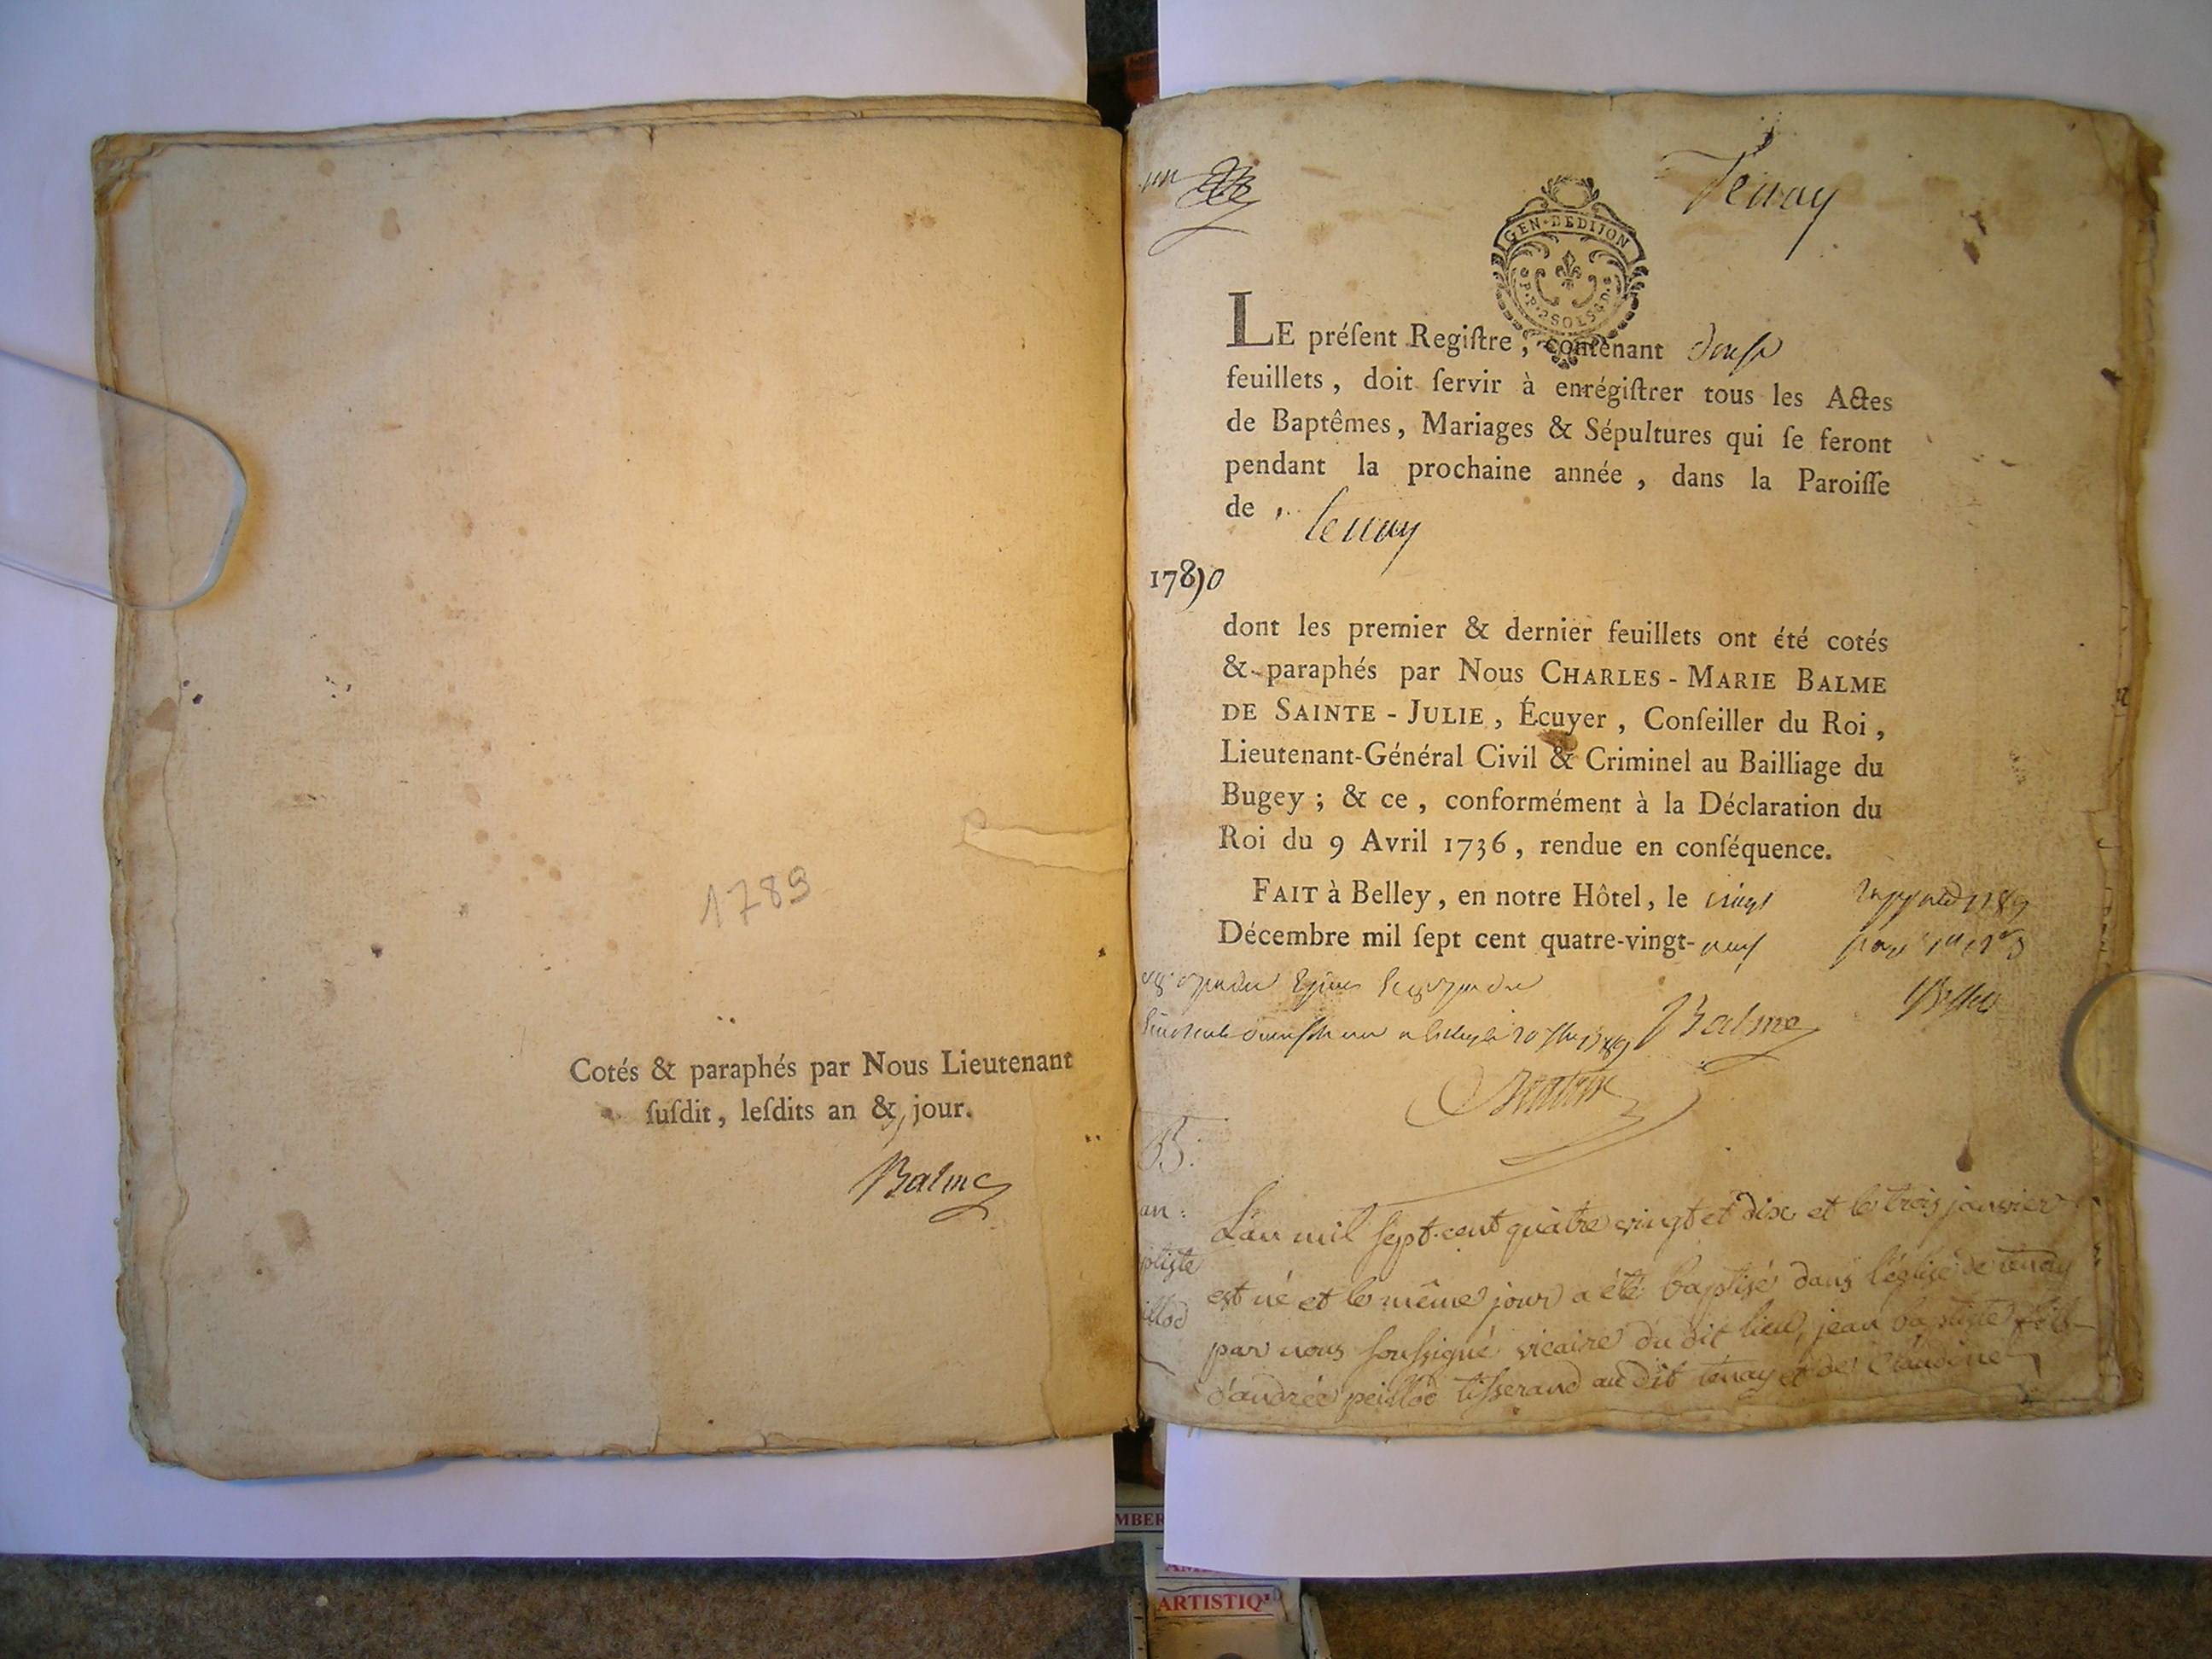 1789
Cotés & paraphés par Nous Lieutenant
ſuſdit, leſdits an & jour.
Balme
un
Tenay
GEN·DEDIJON
LE préſent Regiſtre, contenant douse
feuillets, doit ſervir à enrégiſtrer tous les Actes
de Baptêmes, Mariages & Sépultures qui ſe feront
pendant la prochaine année, dans la Paroiſſe
de, tenay
1790
dont les premier & dernier feuillets ont été cotés
& paraphés par Nous CHARLES-MARIE BALME
DE SAINTE-JULIE, Écuyer, Conſeiller du Roi,
Lieutenant-Général Civil & Criminel au Bailliage du
Bugey; & ce, conformément à la Déclaration du
Roi du 9 Avril 1736, rendue en conſéquence.
FAIT à Belley, en notre Hôtel, le vingt
Décembre mil ſept cent quatre-vingt-neuf
Balme
an:
ptiste
illod
L'an mil sept-cent quatre vingt et dix et le trois janvier
est né et le même jour a été baptisé dans l'église de tenay
par nous soussigné vicaire du dit lieu, jean baptiste fils
d'andrée peillod tisserand au dit tenay et de Claudine
MBER
ARTISTIQ